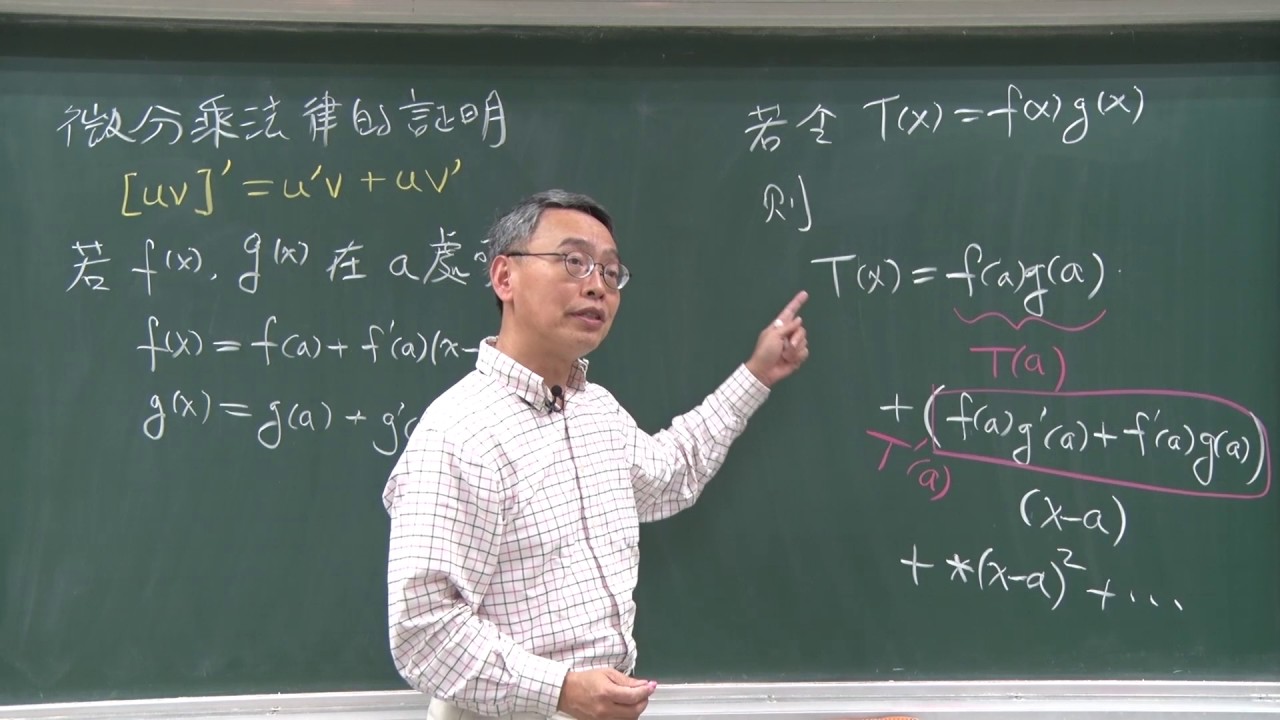 微分乘法律的証明
[uv]' = u'v + uv'
若 f(x), g(x) 在 a 處
f(x) = f(a) + f'(a)(x-
g(x) = g(a) + g'(
若令 T(x) = f(x)g(x)
則
T(x) = f(a)g(a)
T(a)
+ (f(a)g'(a) + f'(a)g(a))
T'(a)
(x-a)
+ *(x-a)² + ...